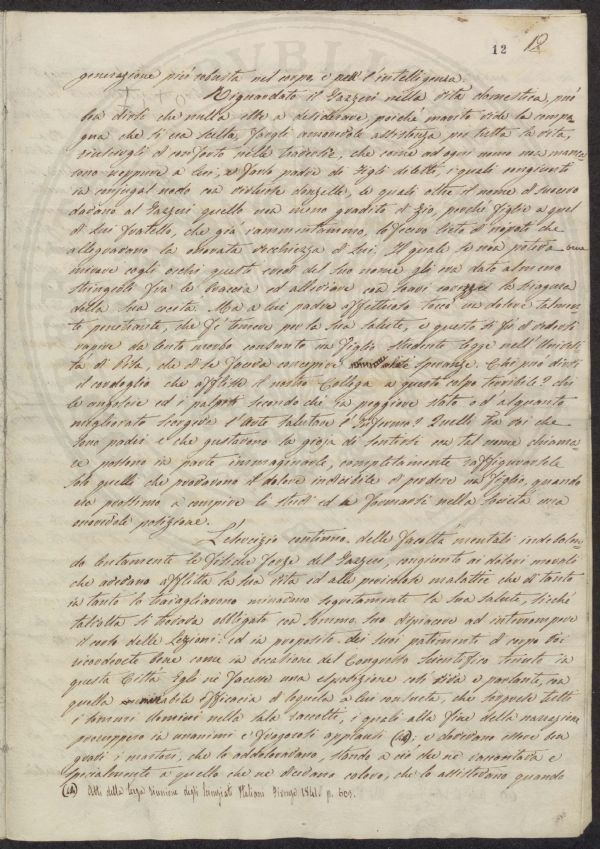 12 12
generazione più robusta nel corpo, e nell'intelligenza.
Riguardato il Gazzeri nella vita domestica, può
ben dirsi che nulla ebbe a desiderare, poichè marito vide la compa-
gna che si era scelta, fargli amorevole assistenza per tutta la vita,
e conforto nelle traversie, che come ad ogni uomo non manca-
rono neppure a lui, e fu padre di figli diletti, i quali congiunti
in conjugal nodo con donzelle, le quali oltre il nome di suocero
davano al Gazzeri quello non meno gradito di zio, perchè figlie a quel
di lui fratello, che già rammentammo, lo fecero lieto di nipoti che
allegravano la onorata vecchiezza di lui. Il quale se non poteva
mirare cogli occhi questi eredi del suo nome gli era dato almeno
stringerli fra le braccia ed alleviare con soavi carezze la sciagura
della sua cecità. Ma a lui padre affettuoso toccò un dolore talmen-
te penetrante, che fè temere per la sua salute, e questo si fu di vedersi
rapire da lento morbo consunto un figlio studente legge nell'Universi-
tà di Pisa, che di se faceva concepire speranze. Chi può dirsi
il cordoglio che afflisse il nostro Collega a questo colpo terribile? chi
le angosce ed i palpiti secondo chè in peggiore stato o d'alquanto
migliorato scorgeva l'infermo? Quelli tra voi che
sono padri e che gustarono la gioja di sentirsi con tal nome chiama-
re possono in parte immaginarle, completamente raffigurarsele
solo quelli che provarono il dolore indicibile di perdere un figlio, quando
era prossimo a compire li studi ed a formarsi nella società una
onorevole posizione.
L'esercizio continuo delle facoltà mentali indebolen-
do lentamente le fisiche forze del Gazzeri, congiunto ai dolori morali
che avevano afflitta la sua vita ed alle penose malattie che di tanto
in tanto lo travagliavano minavano segretamente la sua salute, sicchè
talvolta si trovava obbligato con sommo suo dispiacere ad interrompere
il corso delle Lezioni: ed in proposito dei suoi patimenti di corpo voi
ricorderete bene come in occasione del Congresso Scientifico tenuto in
questa Città Egli ne facesse una esposizione così viva e parlante, con
quella mirabile efficacia di loquela a lui consueta, che sorprese tutti
i sommi uomini nella sala raccolti, i quali alla fine della narrazione
proruppero in unanimi e fragorosi applausi (12): e dovevano essere ben
gravi i martori, che lo addoloravano, stando a ciò che ne raccontava e
specialmente a quello che ne dicevano coloro, che lo assistevano quando
(12) Atti della terza riunione degli Scienziati Italiani Firenze 1841. p. 503.